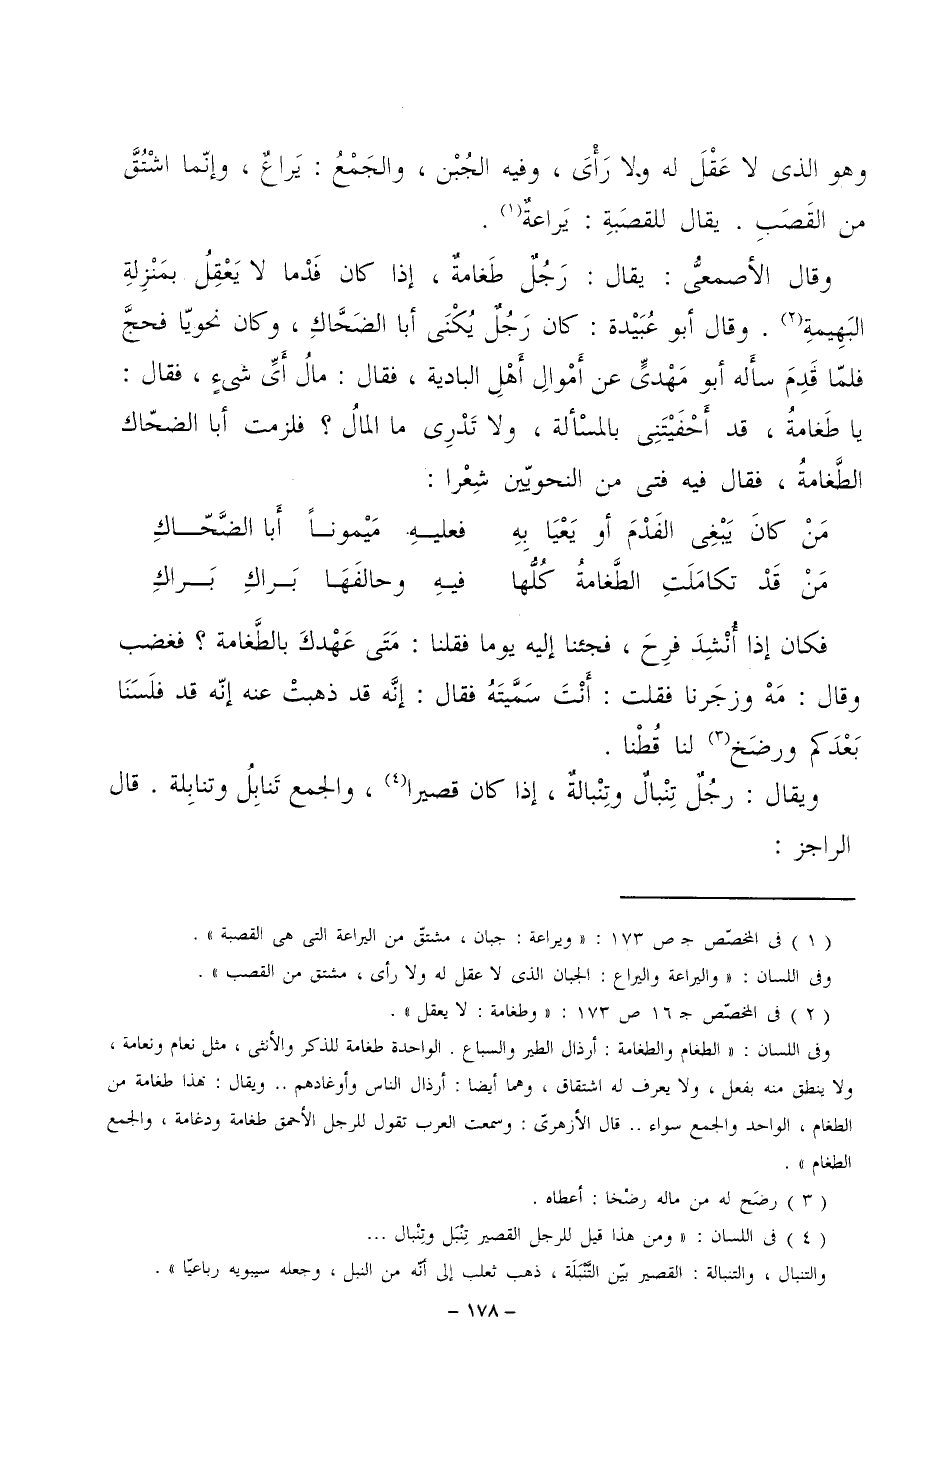 وهو الذى لا عَقْلَ له ولا رَأْىَ ، وفيه الجُبْن ، والجَمْعُ : يَراعٌ ، وإنّما اشْتُقَّ
من القَصَبِ . يقال للقصَبةِ : يَراعةٌ(١) .
وقال الأصمعىُّ : يقال : رَجُلٌ طَغامةٌ ، إذا كان فَدْما لا يَعْقِلُ بمَنْزِلةِ
البَهِيمةِ(٢) . وقال أبو عُبَيْدة : كان رَجُلٌ يُكْنَى أبا الضَحَّاكِ ، وكان نحويّا فحجَّ
فلمّا قَدِمَ سأله أبو مَهْدىٍّ عن أمْوالِ أهْلِ البادية ، فقال : مالُ أَىِّ شىءٍ ، فقال :
يا طَغامةُ ، قد أَحْفَيْتَنِى بالمسْألة ، ولا تَدْرِى ما المالُ ؟ فلزمت أبا الضحّاك
الطَّغامةُ ، فقال فيه فتى من النحويّين شِعْرا :
مَنْ كانَ يَبْغِى الفَدْمَ أو يَعْيَا بِهِ فعليـهِ مَيْمونـاً أَبا الضَّحّـاكِ
مَنْ قَدْ تكامَلَتِ الطَّغامةُ كُلُّها فيـهِ وحالَفَهَـا بَـراكِ بَـراكِ
فكان إذا أُنْشِدَ فرِحَ ، فجئنا إليه يوما فقلنا : مَتَى عَهْدكَ بالطَّغامة ؟ فغضب
وقال : مَهْ وزجَرنا فقلت : أَنْتَ سَمَّيتَهُ فقال : إنَّه قد ذهبتْ عنه إنّه قد فلَسَنَا
بَعْدَكم ورضَخ(٣) لنا قُطْنا .
ويقال : رجُلٌ تِنْبالٌ وتِنْبالةٌ ، إذا كان قصيرا(٤) ، والجمع تَنابِلُ وتنابِلة . قال
الراجز :
( ١ ) فى المخصّص جـ ص ١٧٣ : « ويراعة : جبان ، مشتقّ من اليراعة التى هى القصبة » .
وفى اللسان : « واليراعة واليراع : الجبان الذى لا عقل له ولا رأى ، مشتق من القصب » .
( ٢ ) فى المخصّص جـ ١٦ ص ١٧٣ : « وطغامة : لا يعقل » .
وفى اللسان : « الطغام والطغامة : أرذال الطير والسباع . الواحدة طغامة للذكر والأنثى ، مثل نعام ونعامة ،
ولا ينطق منه بفعل ، ولا يعرف له اشتقاق ، وهما أيضا : أرذال الناس وأوغادهم .. ويقال : هذا طغامة من
الطغام ، الواحد والجمع سواء .. قال الأزهرىّ : وسمعت العرب تقول للرجل الأحمق طغامة ودغامة ، والجمع
الطغام » .
( ٣ ) رضَح له من ماله رضْخا : أعطاه .
( ٤ ) فى اللسان : « ومن هذا قيل للرجل القصير تِنْبَل وتِنْبال ...
والتنبال ، والتنبالة : القصير بيّن التَّنْبَلَة ، ذهب ثعلب إلى أنّه من النبل ، وجعله سيبويه رباعيّا » .
– ١٧٨ –